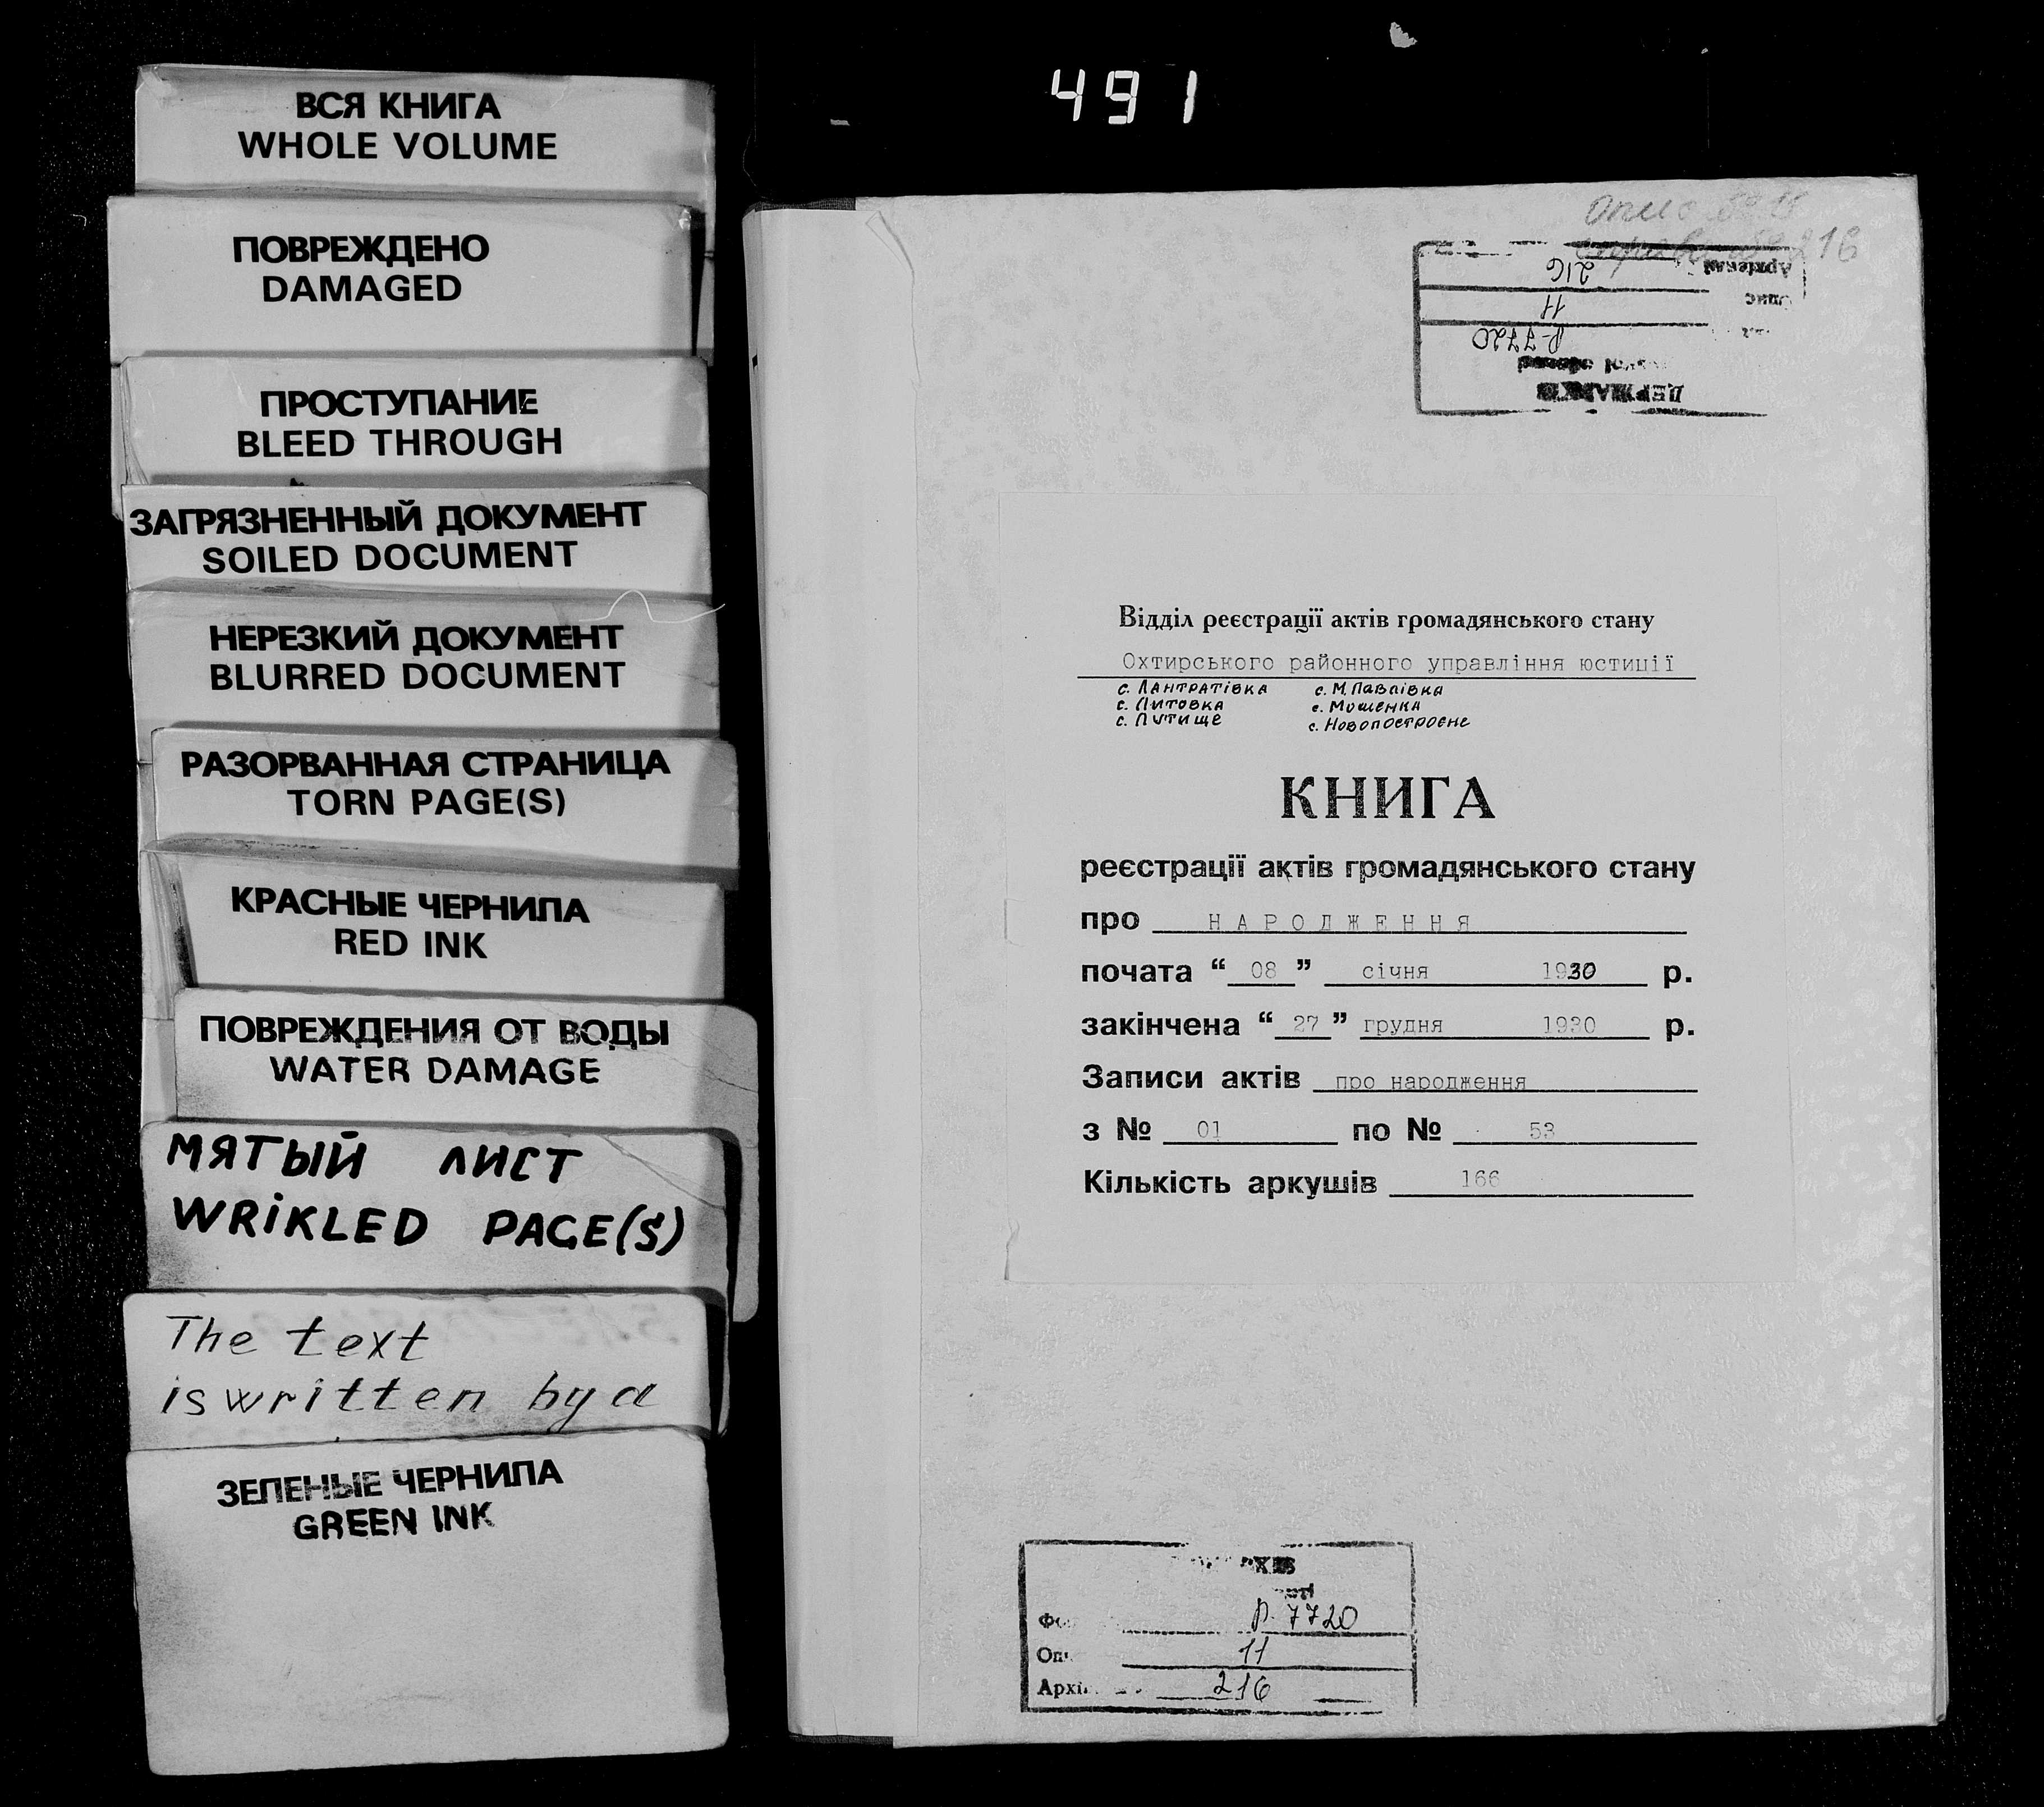 491
ВСЯ КНИГА
WHOLE VOLUME
ПОВРЕЖДЕНО
DAMAGED
ПРОСТУПАНИЕ
BLEED THROUGH
ЗАГРЯЗНЕННЫЙ ДОКУМЕНТ
SOILED DOCUMENT
НЕРЕЗКИЙ ДОКУМЕНТ
BLURRED DOCUMENT
РАЗОРВАННАЯ СТРАНИЦА
TORN PAGE(S)
КРАСНЫЕ ЧЕРНИЛА
RED INK
ПОВРЕЖДЕНИЯ ОТ ВОДЫ
WATER DAMAGE
МЯТЫЙ ЛИСТ
WRIKLED PAGE(S)
The text
is written by a
ЗЕЛЕНЫЕ ЧЕРНИЛА
GREEN INK
Опис
216
Р-7720
11
216
Відділ реєстрації актів громадянського стану
Охтирського районного управління юстиції
с. Лантратівка с. М. Павлівка
с. Литовка с. Мошенка
с. Лутище с. Новопостроєне
КНИГА
реєстрації актів громадянського стану
про НАРОДЖЕННЯ
почата “ 08 ” січня 1930 р.
закінчена “ 27 ” грудня 1930 р.
Записи актів про народження
з № 01 по № 53
Кількість аркушів 166
Р-7720
11
216